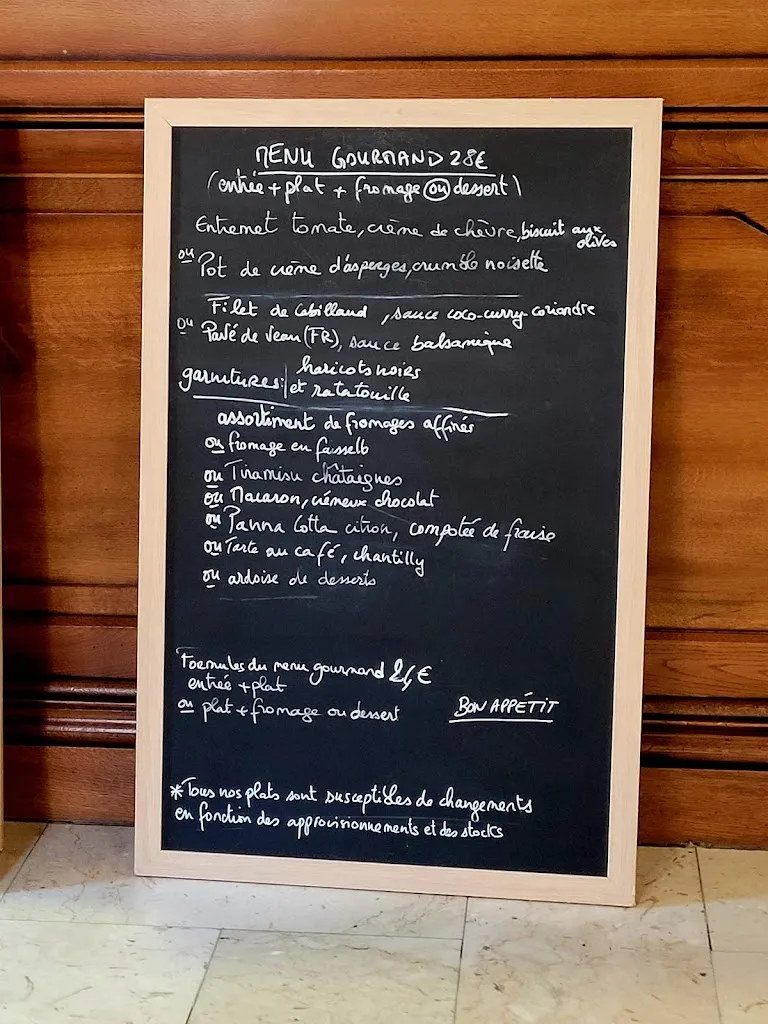 MENU GOURMAND 28€
(entrée + plat + fromage ou dessert)
Entremet tomate, crème de chèvre, biscuit aux olives
ou Pot de crème d'asperges, crumble noisette
Filet de Cabillaud, sauce coco-curry-coriandre
ou Pavé de Veau (FR), sauce balsamique
garnitures: haricots noirs
et ratatouille
assortiment de fromages affinés
ou fromage en faisselle
ou Tiramisu châtaignes
ou Macaron, crémeux chocolat
ou Panna Cotta citron, compotée de fraise
ou Tarte au café, chantilly
ou ardoise de desserts
Formules du menu gourmand 24€
entrée + plat
ou plat + fromage ou dessert
BON APPÉTIT
*Tous nos plats sont susceptibles de changements
en fonction des approvisionnements et des stocks